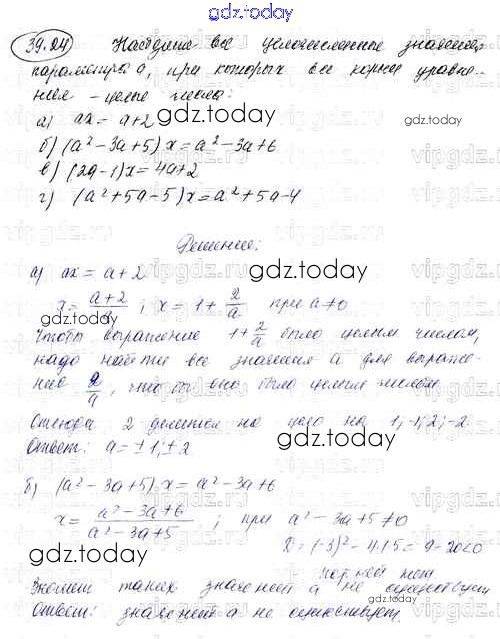 gdz.today
39.24 Найдите все целочисленные значения
параметра а, при которых все корни уравне-
ния - целые числа:
а) ax = a+2
gdz.today
б) (a² - 3a + 5) x = a² - 3a + 6
в) (2a - 1)x = 4a + 2
г) (a² + 5a - 5) x = a² + 5a - 4
Решение:
а) ax = a + 2
gdz.today
x = a+2 / a ; x = 1 + 2/a при a ≠ 0
Чтобы выражение 1 + 2/a было целым числом,
надо найти все значения a для выраже-
ния 2/a, чтобы оно было целым числом.
Отсюда 2 делится на цело на 1; -1; 2; -2
Ответ: a = ±1; ±2
gdz.today
б) (a² - 3a + 5) x = a² - 3a + 6
x = a² - 3a + 6 / a² - 3a + 5 ; при a² - 3a + 5 ≠ 0
D = (-3)² - 4·1·5 = 9 - 20 < 0
gdz.today
корней нет
Значит таких значений a не существует
Ответ: значений a не существует.
gdz.today